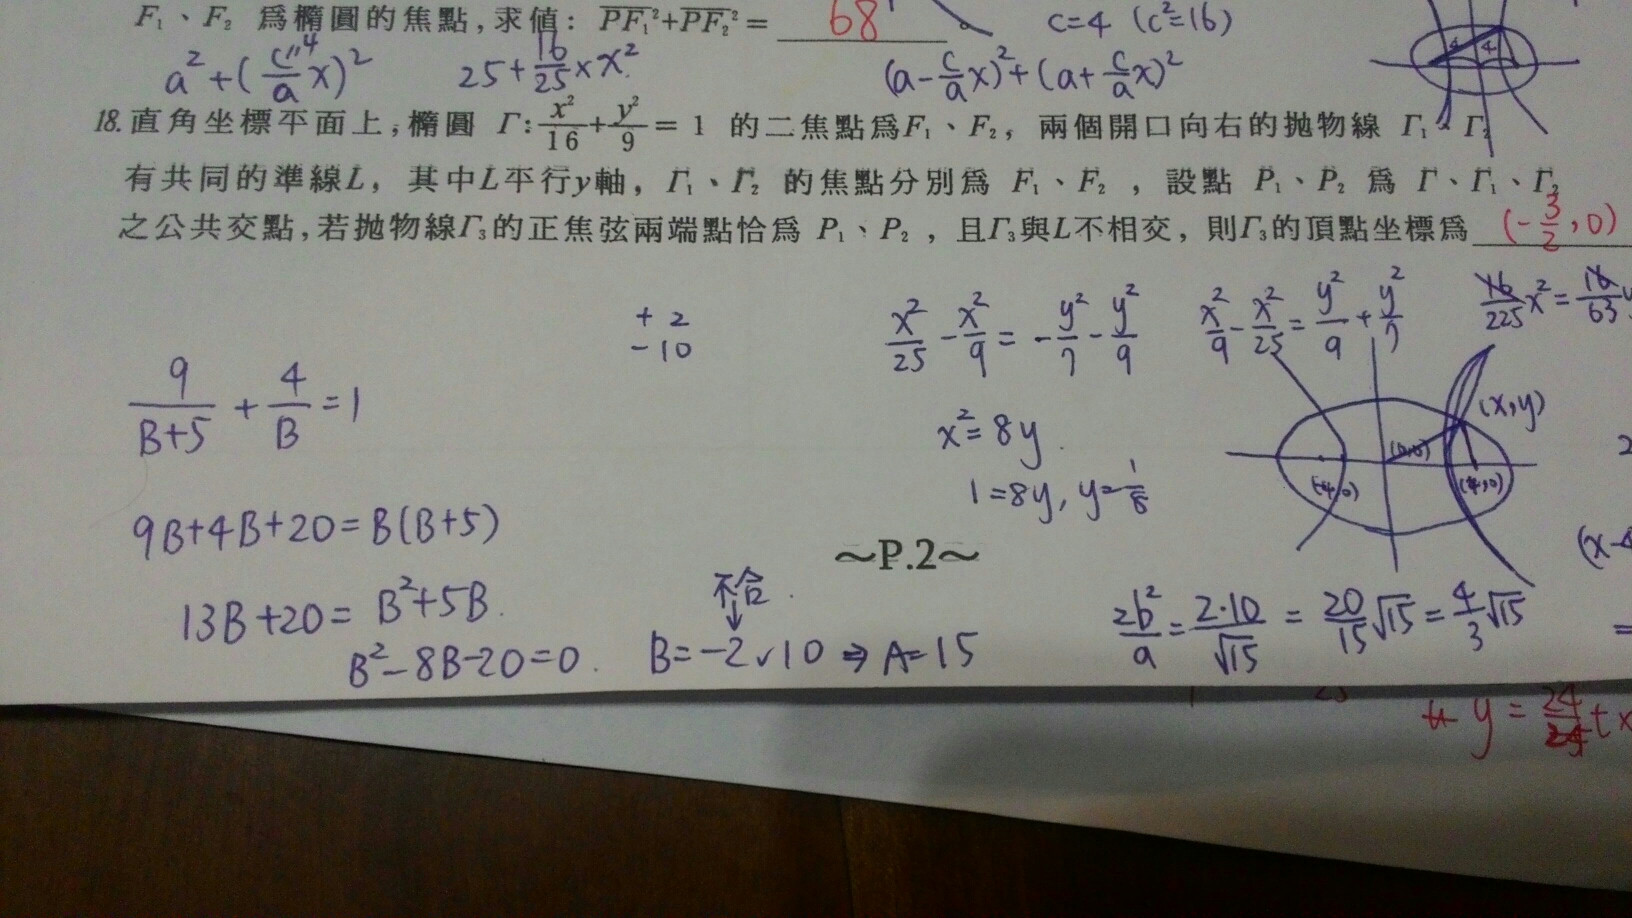 F₁、F₂ 為橢圓的焦點,求值: PF₁²+PF₂²= 68 。 c=4 (c²=16)
a²+(c"4/a x)² 25+16/25×x² (a-c/a x)²+(a+c/a x)²
18.直角坐標平面上,橢圓 Γ:x²/16+y²/9=1 的二焦點為F₁、F₂,兩個開口向右的拋物線 Γ₁、Γ₂
有共同的準線L,其中L平行y軸,Γ₁、Γ₂ 的焦點分別為 F₁、F₂ ,設點 P₁、P₂ 為 Γ、Γ₁、Γ₂
之公共交點,若拋物線Γ₃的正焦弦兩端點恰為 P₁、P₂ ,且Γ₃與L不相交,則Γ₃的頂點坐標為 (-3/2,0)
+ 2
- 10
x²/25-x²/9=-y²/7-y²/9 x²/9-x²/25=y²/9+y²/7 16/225x²=16/63
9/B+5+4/B=1
x²=8y.
1=8y, y=1/8
(x,y)
(0,0)
(-4,0) (4,0)
9B+4B+20=B(B+5)
~P.2~
13B+20=B²+5B.
不合.
B²-8B-20=0. B=-2,10 ⇒ A=15
2b²/a=2·10/√15=20/15√15=4/3√15
y=24/25tx